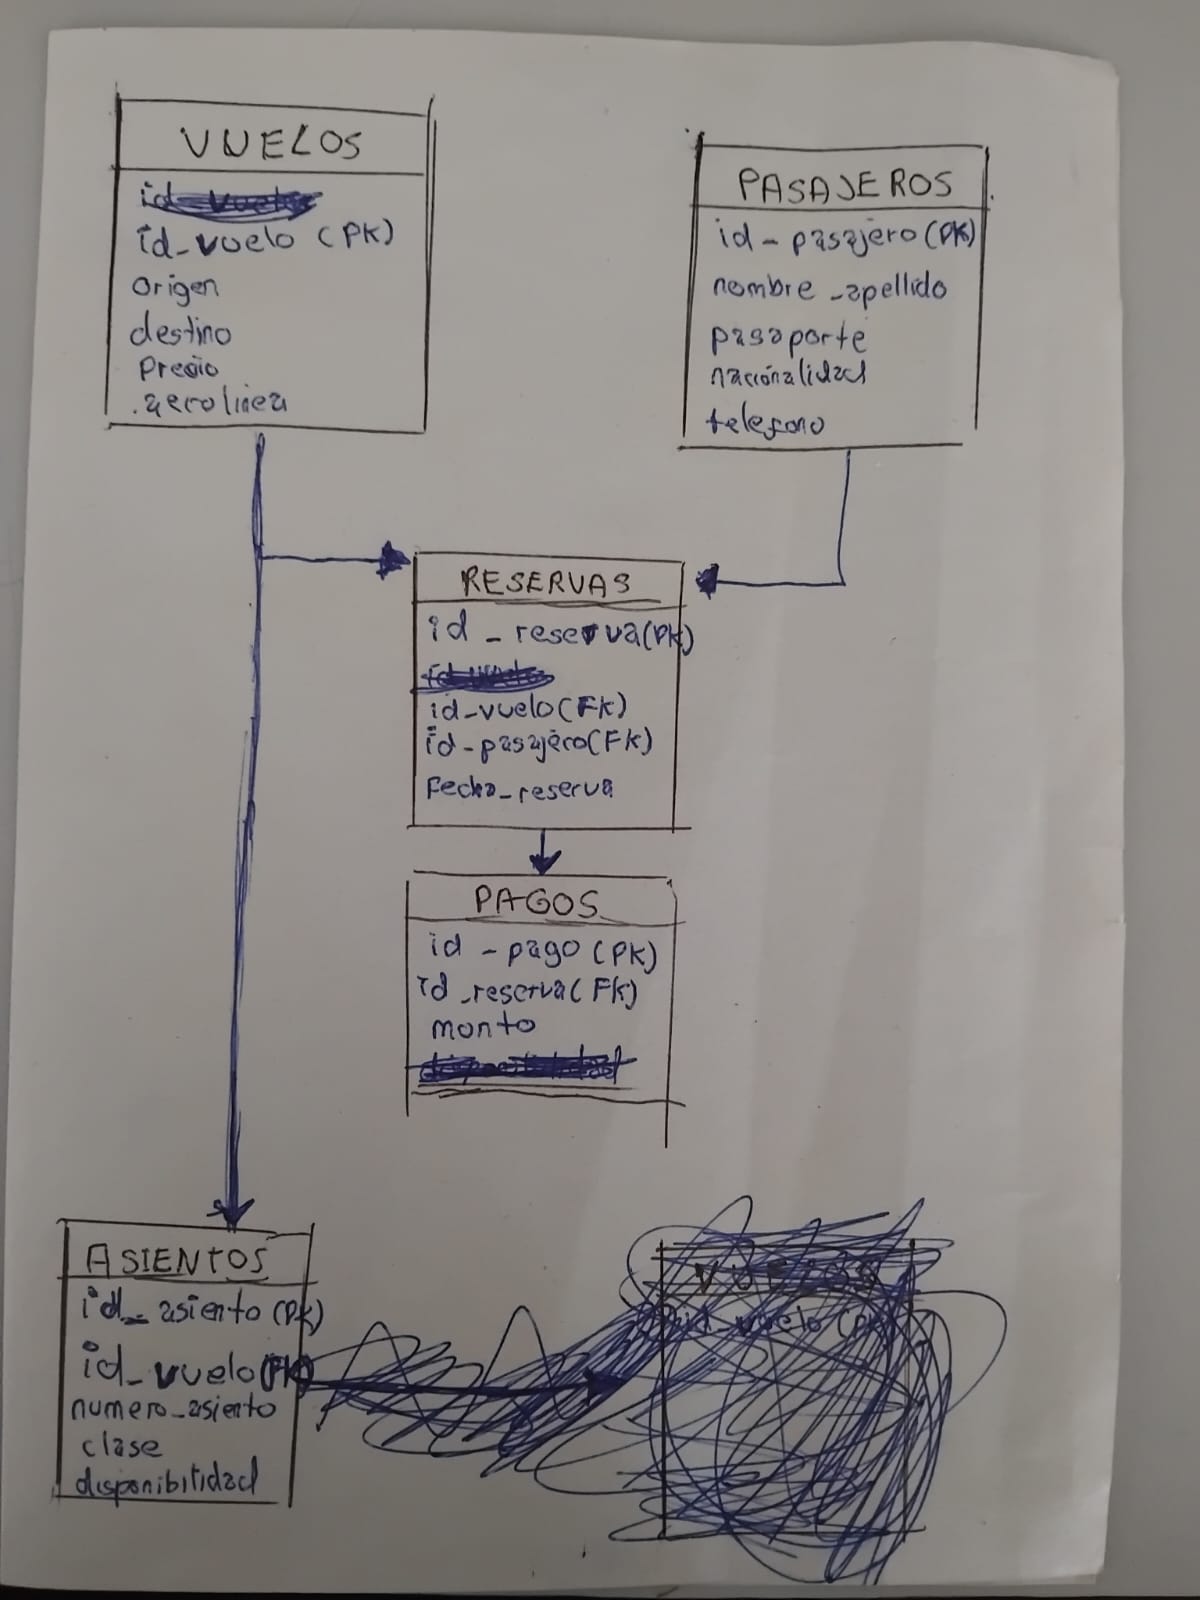 VUELOS
id_vuelo (PK)
origen
destino
Precio
.aerolinea
PASAJEROS
id_pasajero (PK)
nombre_apellido
pasaporte
nacionalidad
telefono
RESERVAS
id_reserva (PK)
id_vuelo (FK)
id_pasajero (FK)
Fecha_reserva
PAGOS
id_pago (PK)
id_reserva (FK)
monto
ASIENTOS
id_asiento (PK)
id_vuelo (FK)
numero_asiento
clase
disponibilidad
VUELOS
id_vuelo (PK)